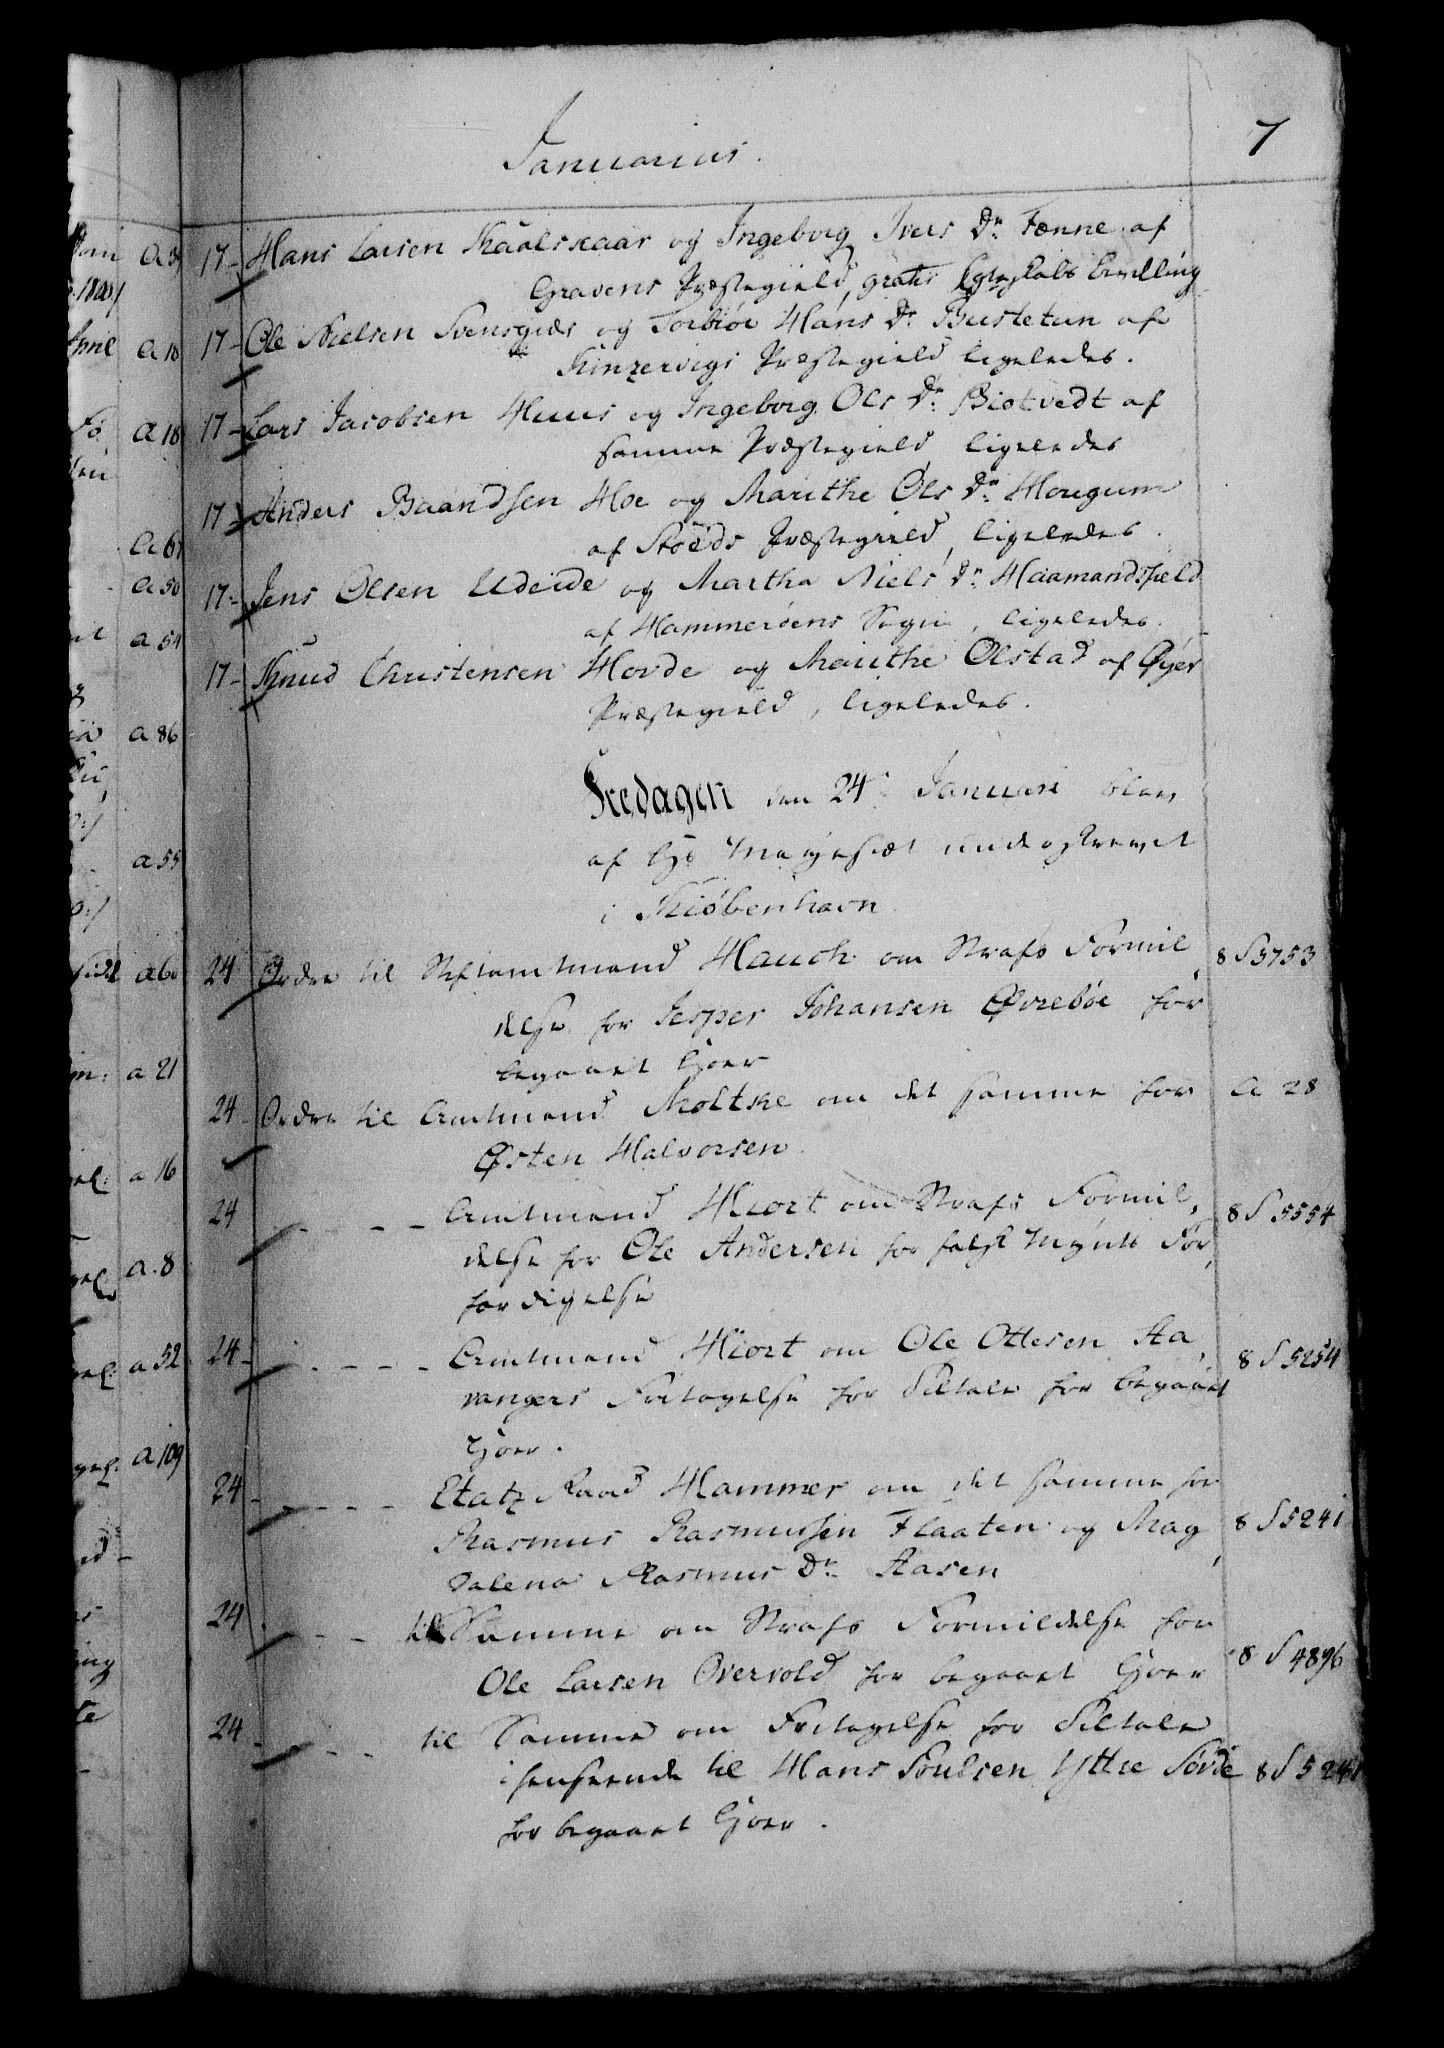 Januarius.
7
17 - Hans Larsen Skaalskaar og Ingeborg Ivers Dr. Tenne af
Gravens Præstegield, gratis Egteskabs Bevilling
17 - Ole Nielsen Svensgier og Torbiør Hans Dr. Bustetun af
Kinzervigs Præstegield ligeledes.
17 - Lars Jacobsen Huus og Ingeborg Ols Dr. Biotvedt af
samme Præstegield ligeledes
17 - Anders Baardsen Hoe og Marithe Ols Dr. Horegum
af Støeds Præstegield, ligeledes.
17 - Jens Olsen Udeide og Martha Niels Dr. Haamandskield
af Hammerøens Sogn, ligeledes.
17 - Knud Christensen Hovde og Marithe Olstad af Øyer
Præstegield, ligeledes.
Fredagen den 24de Januari blev
af Hs Mayestæt underskrevet
i Kiøbenhavn
24 Ordre til Stiftamtmand Hauch om Strafs Formil 8 S 5753
delse for Jesper Johansen Øvrebøe for
begaaet Hoer
24 Ordre til Amtmand Moltke om det samme for a 28
Østen Halvorsen.
24 - - - Amtmand Hiort om Strafs Formil, 8 S 5554
delse for Ole Andersen for falsk Mynts For,
færdigelse
24 - - - - Amtmand Hiort om Ole Ottesen Sta, 8 S 5254
vangers Fritagelse for Tiltale for begaaet
Hoer.
24 - - - - Etatz Raad Hammer om det samme for
Rasmus Rasmussen Flaaten og Mag, 8 S 5241
dalena Rasmus Dr. Aasen
24 - - - til Samme om Strafs Formildelse for
Ole Larsen Overvold for begaaet Hoer 8 S 4896
24 - - - til Samme om Fritagelse for Tiltale
i henseende til Hans Poulsen Yttre Førde 8 S 5241
for begaaet Hoer.
a 18
a 18
a 50
a 54
a 86
a 55
a 60
a 21
a 16
a 8
a 52
a 109